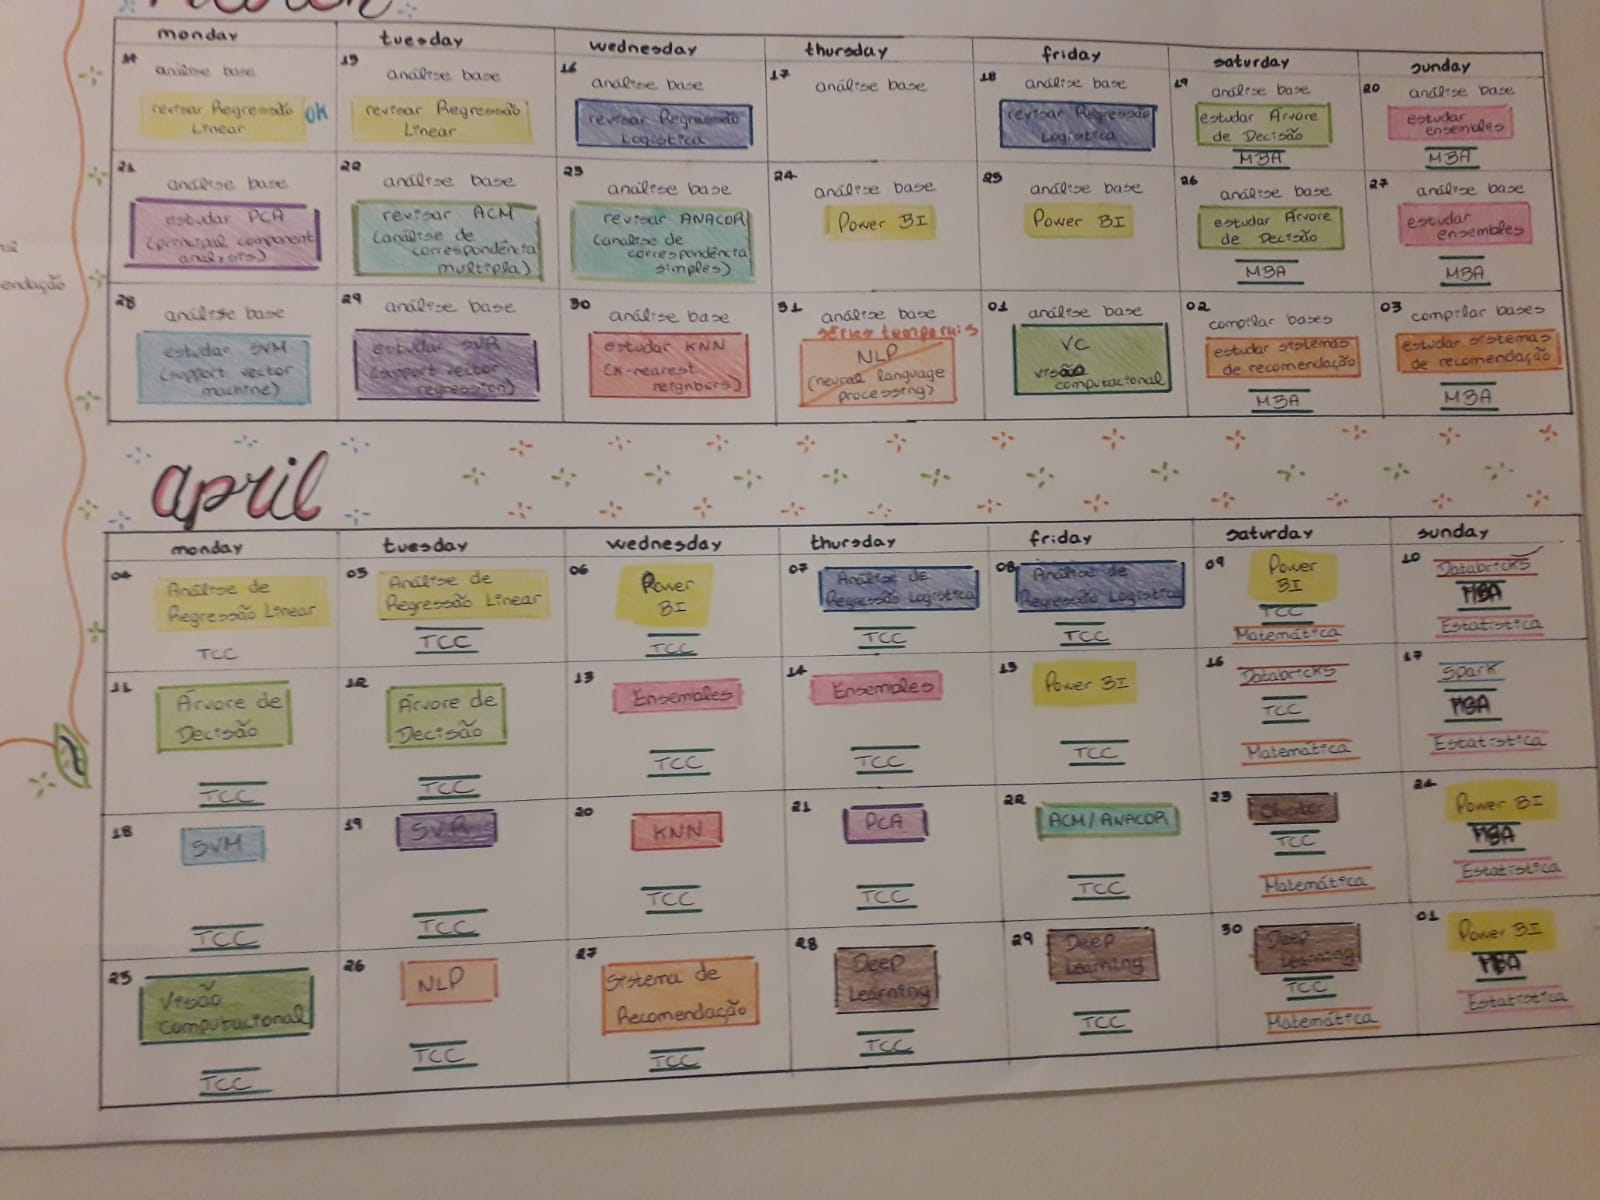 monday
tuesday
wednesday
thursday
friday
saturday
sunday
14
análise base
revisar Regressão OK
Linear
15
análise base
revisar Regressão
Linear
16
análise base
revisar Regressão
Logística
17
análise base
18
análise base
revisar Regressão
Logística
19
análise base
estudar Árvore
de Decisão
MBA
20
análise base
estudar
ensembles
MBA
21
análise base
estudar PCA
(principal component
analysis)
22
análise base
revisar ACM
(análise de
correspondência
multipla)
23
análise base
revisar ANACOR
(analise de
correspondência
simples)
24
análise base
Power BI
25
análise base
Power BI
26
análise base
estudar Árvore
de Decisão
MBA
27
análise base
estudar
ensembles
MBA
28
análise base
estudar SVM
(support vector
machine)
29
análise base
estudar SVR
(support vector
regression)
30
análise base
estudar KNN
(K-nearest
neighbors)
31
análise base
séries temporais
NLP
(neural language
processing)
01
análise base
VC
visão
computacional
02
compilar bases
estudar sistemas
de recomendação
MBA
03
compilar bases
estudar sistemas
de recomendação
MBA
april
monday
tuesday
wednesday
thursday
friday
saturday
sunday
04
Análise de
Regressão Linear
TCC
05
Análise de
Regressão Linear
TCC
06
Power
BI
TCC
07
Análise de
Regressão Logística
TCC
08
Análise de
Regressão Logística
TCC
09
Power
BI
TCC
Matemática
10
Databricks
MBA
Estatística
11
Árvore de
Decisão
TCC
12
Árvore de
Decisão
TCC
13
Ensembles
TCC
14
Ensembles
TCC
15
Power BI
TCC
16
Databricks
TCC
Matemática
17
Spark
MBA
Estatística
18
SVM
TCC
19
SVR
TCC
20
KNN
TCC
21
PCA
TCC
22
ACM/ANACOR
TCC
23
Cluster
TCC
Matemática
24
Power BI
MBA
Estatística
25
Visão
Computacional
TCC
26
NLP
TCC
27
Sistema de
Recomendação
TCC
28
Deep
Learning
TCC
29
Deep
Learning
TCC
30
Deep
Learning
TCC
Matemática
01
Power BI
MBA
Estatística